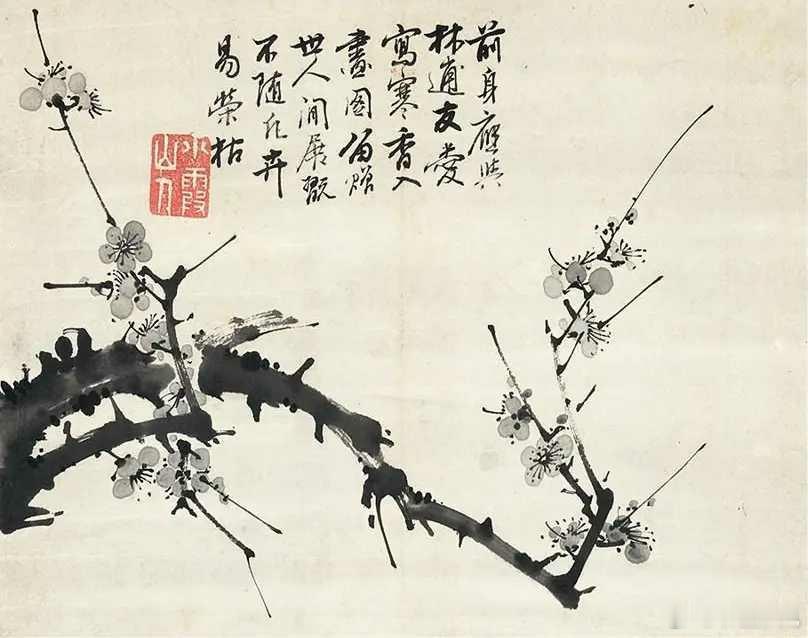 前身應與
林逋友愛
寫寒香入
畫圖留贈
世人閒展翫
不隨凡卉
易榮枯
霞
山人